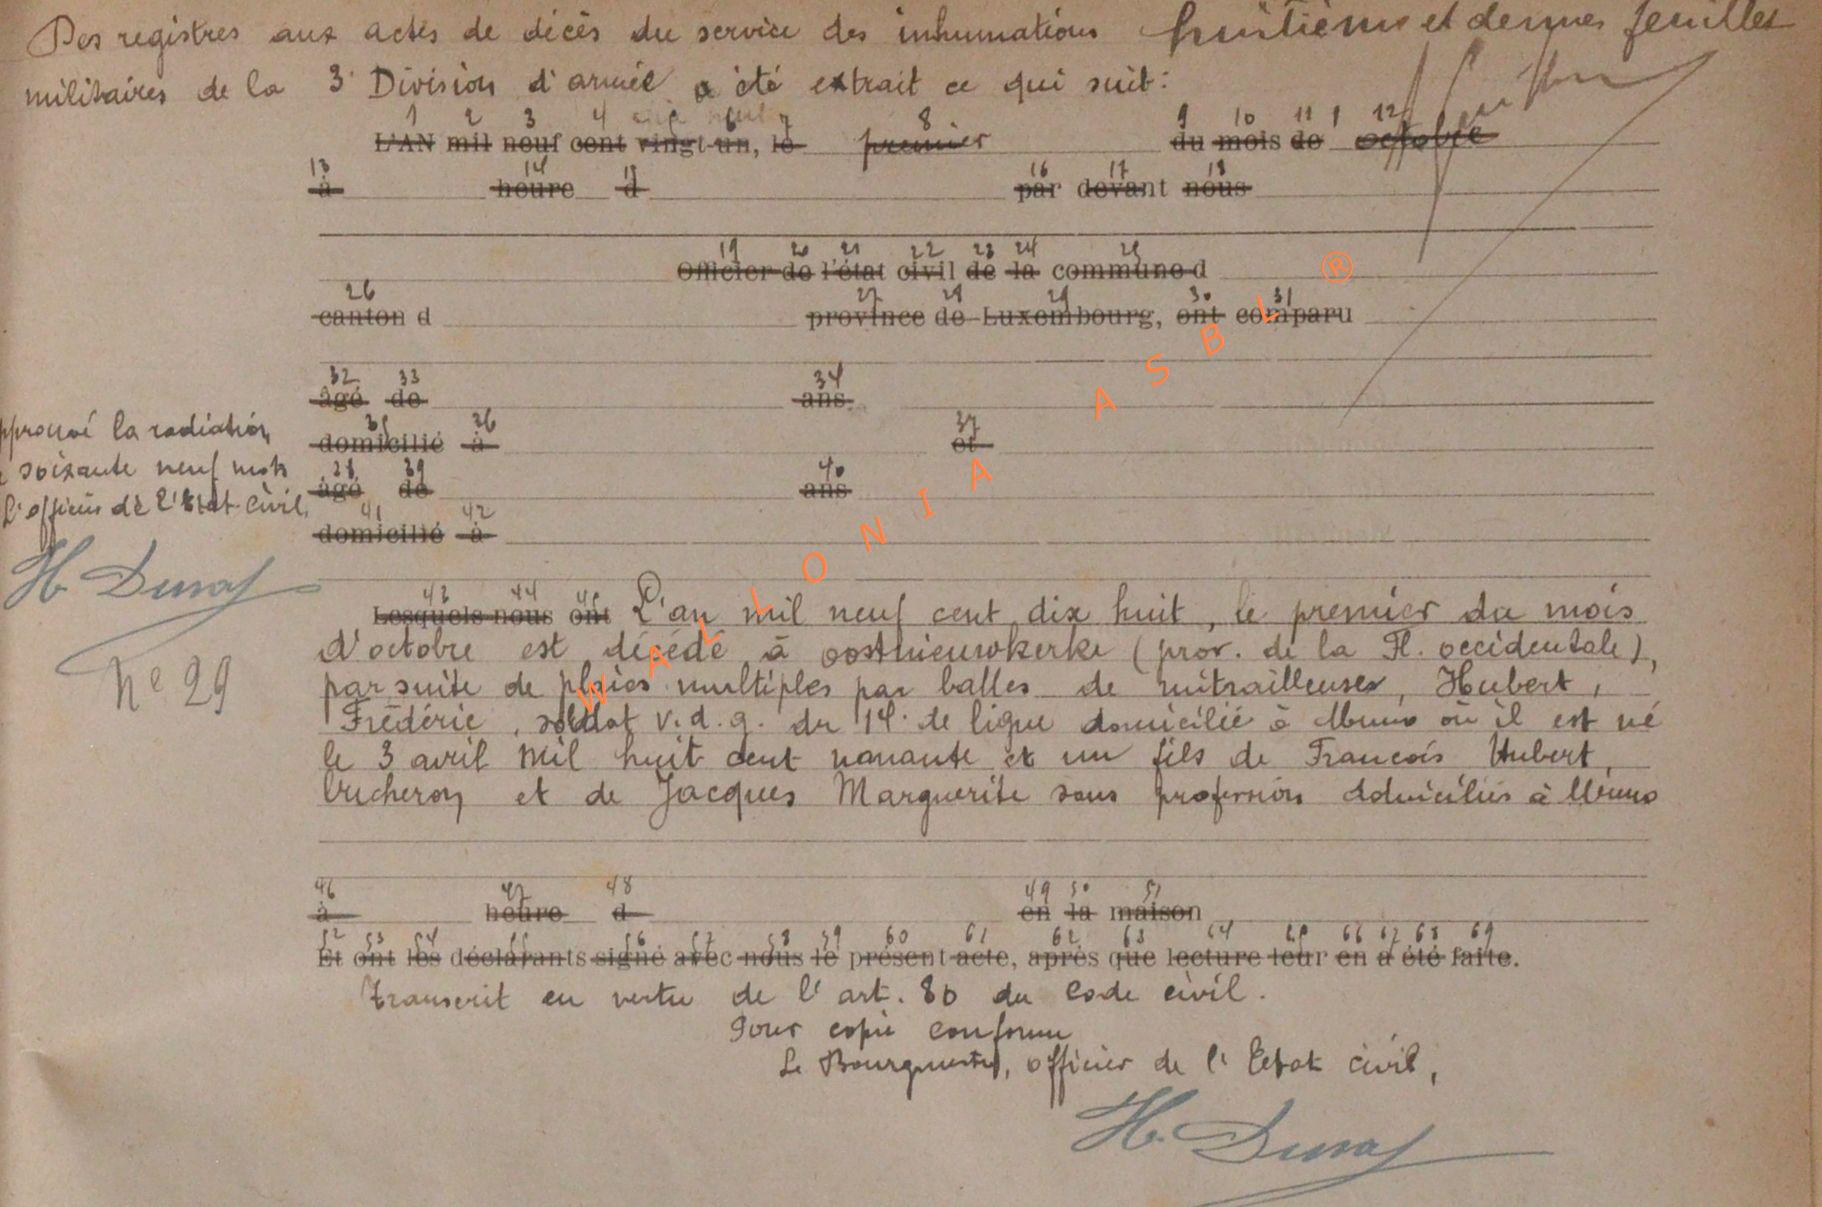 Des registres aux actes de décès du service des inhumations huitième et dernier feuillet
militaires de la 3e Division d'armée a été extrait ce qui suit:
1 2 3 4 5 6 7 8 9 10 11 12
L'AN mil neuf cent vingt-un, le premier du mois de octobre
13 14 15 16 17 18
à heure d par devant nous
19 20 21 22 23 24 25
Officier de l'état civil de la commune d
26 27 28 29 30 31
canton d province de Luxembourg, ont comparu
32 33 34
âgé de ans
35 36 37
domicilié à et
38 39 40
âgé de ans
41 42
domicilié à
approuvé la radiation
de soixante neuf mots
L'officier de l'Etat-civil,
H. Duraf
N° 29
43 44 45
Lesquels nous ont L'an mil neuf cent dix huit, le premier du mois
d'octobre est décédé à oostnieuwkerke (prov. de la Fl. occidentale),
par suite de plaies multiples par balles de mitrailleuses, Hubert,
Frédéric, soldat v.d.g. du 14e de ligne domicilié à Muno où il est né
le 3 avril mil huit cent nonante et un fils de François Hubert,
bucheron et de Jacques Marguerite sans profession domiciliés à Muno
46 47 48 49 50 51
à heure d en la maison
52 53 54 55 56 57 58 59 60 61 62 63 64 65 66 67 68 69
Et ont les déclarants signé avec nous le présent acte, après que lecture leur en a été faite.
Transcrit en vertu de l'art. 80 du Code civil.
Pour copie conforme
Le Bourgmestre, officier de l'Etat civil,
H. Duraf
WALLONIA ASBL ®